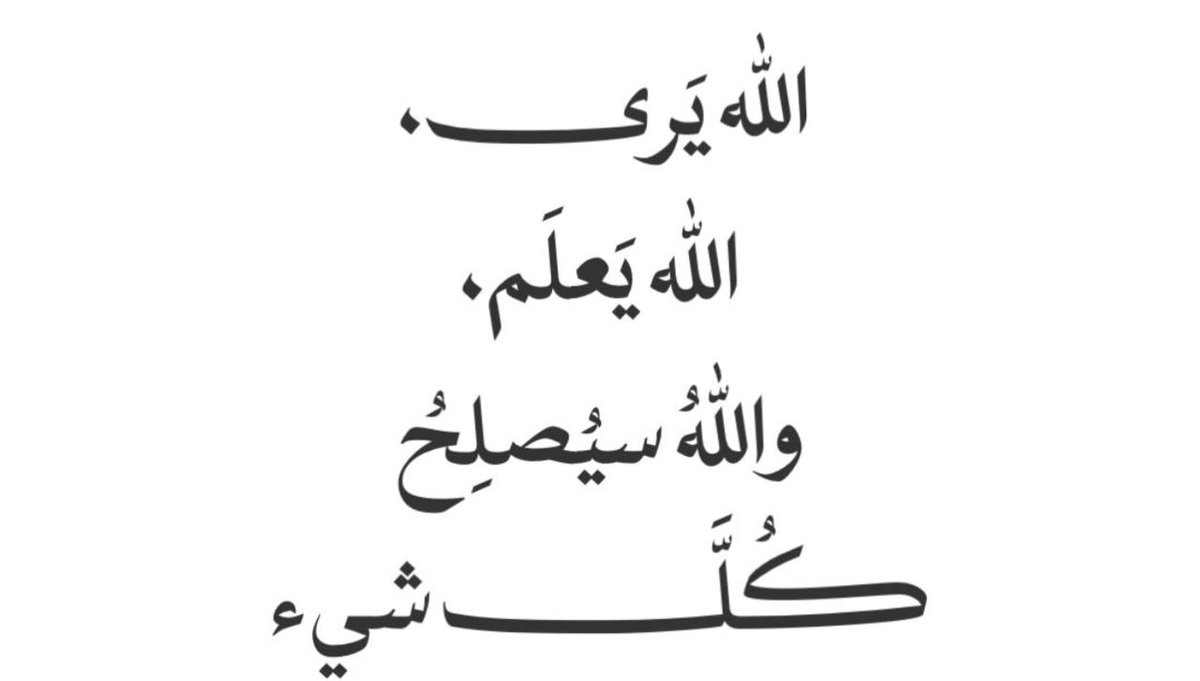 الله يَرى.
الله يَعلَم.
واللهُ سيُصلِحُ
كُلَّ شيء